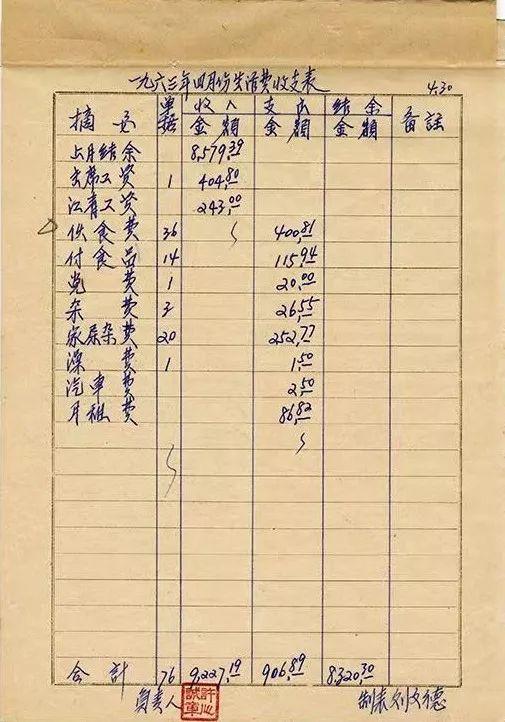 一九六三年四月份生活费收支表 4.30
摘要 单据 收入金额 支出金额 结余金额 备註
上月结余 8,579.39
主席工资 1 404.80
江青工资 243.00
伙食费 36 400.81
付食品 14 115.94
党费 1 20.00
杂费 3 26.55
家居杂费 20 252.77
澡费 1 1.50
汽車费 2.50
月租费 86.82
合計 76 9,227.19 906.89 8320.30
負责人 制表